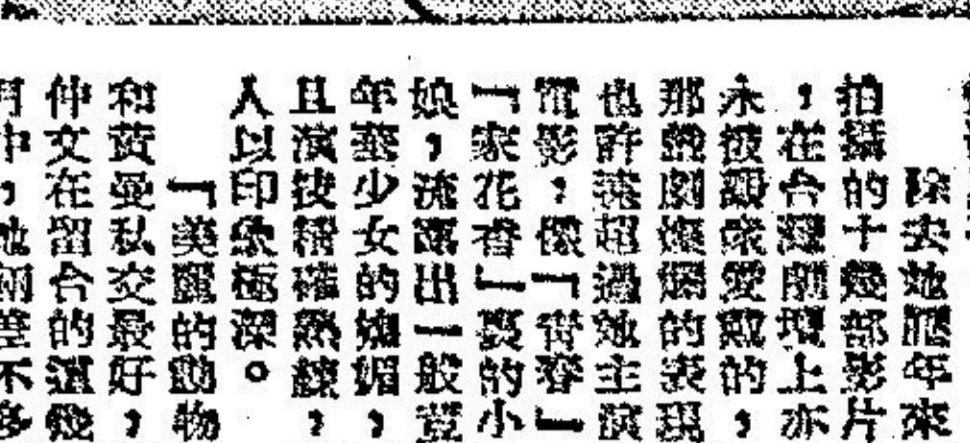 除去她歷年來
拍攝的十幾部影片
，在台灣劇壇上亦
永被觀衆愛戴的，
那戲劇嫻熟的表現
也許業超過她主演
電影，像「青春」
「家花香」裏的小
娘，流露出一般荳
年華少女的嫵媚，
且演技精確熟練，
人以印象極深。
「美麗的動物
和黃曼私交最好，
仲文在留台的這幾
月中，她
不多